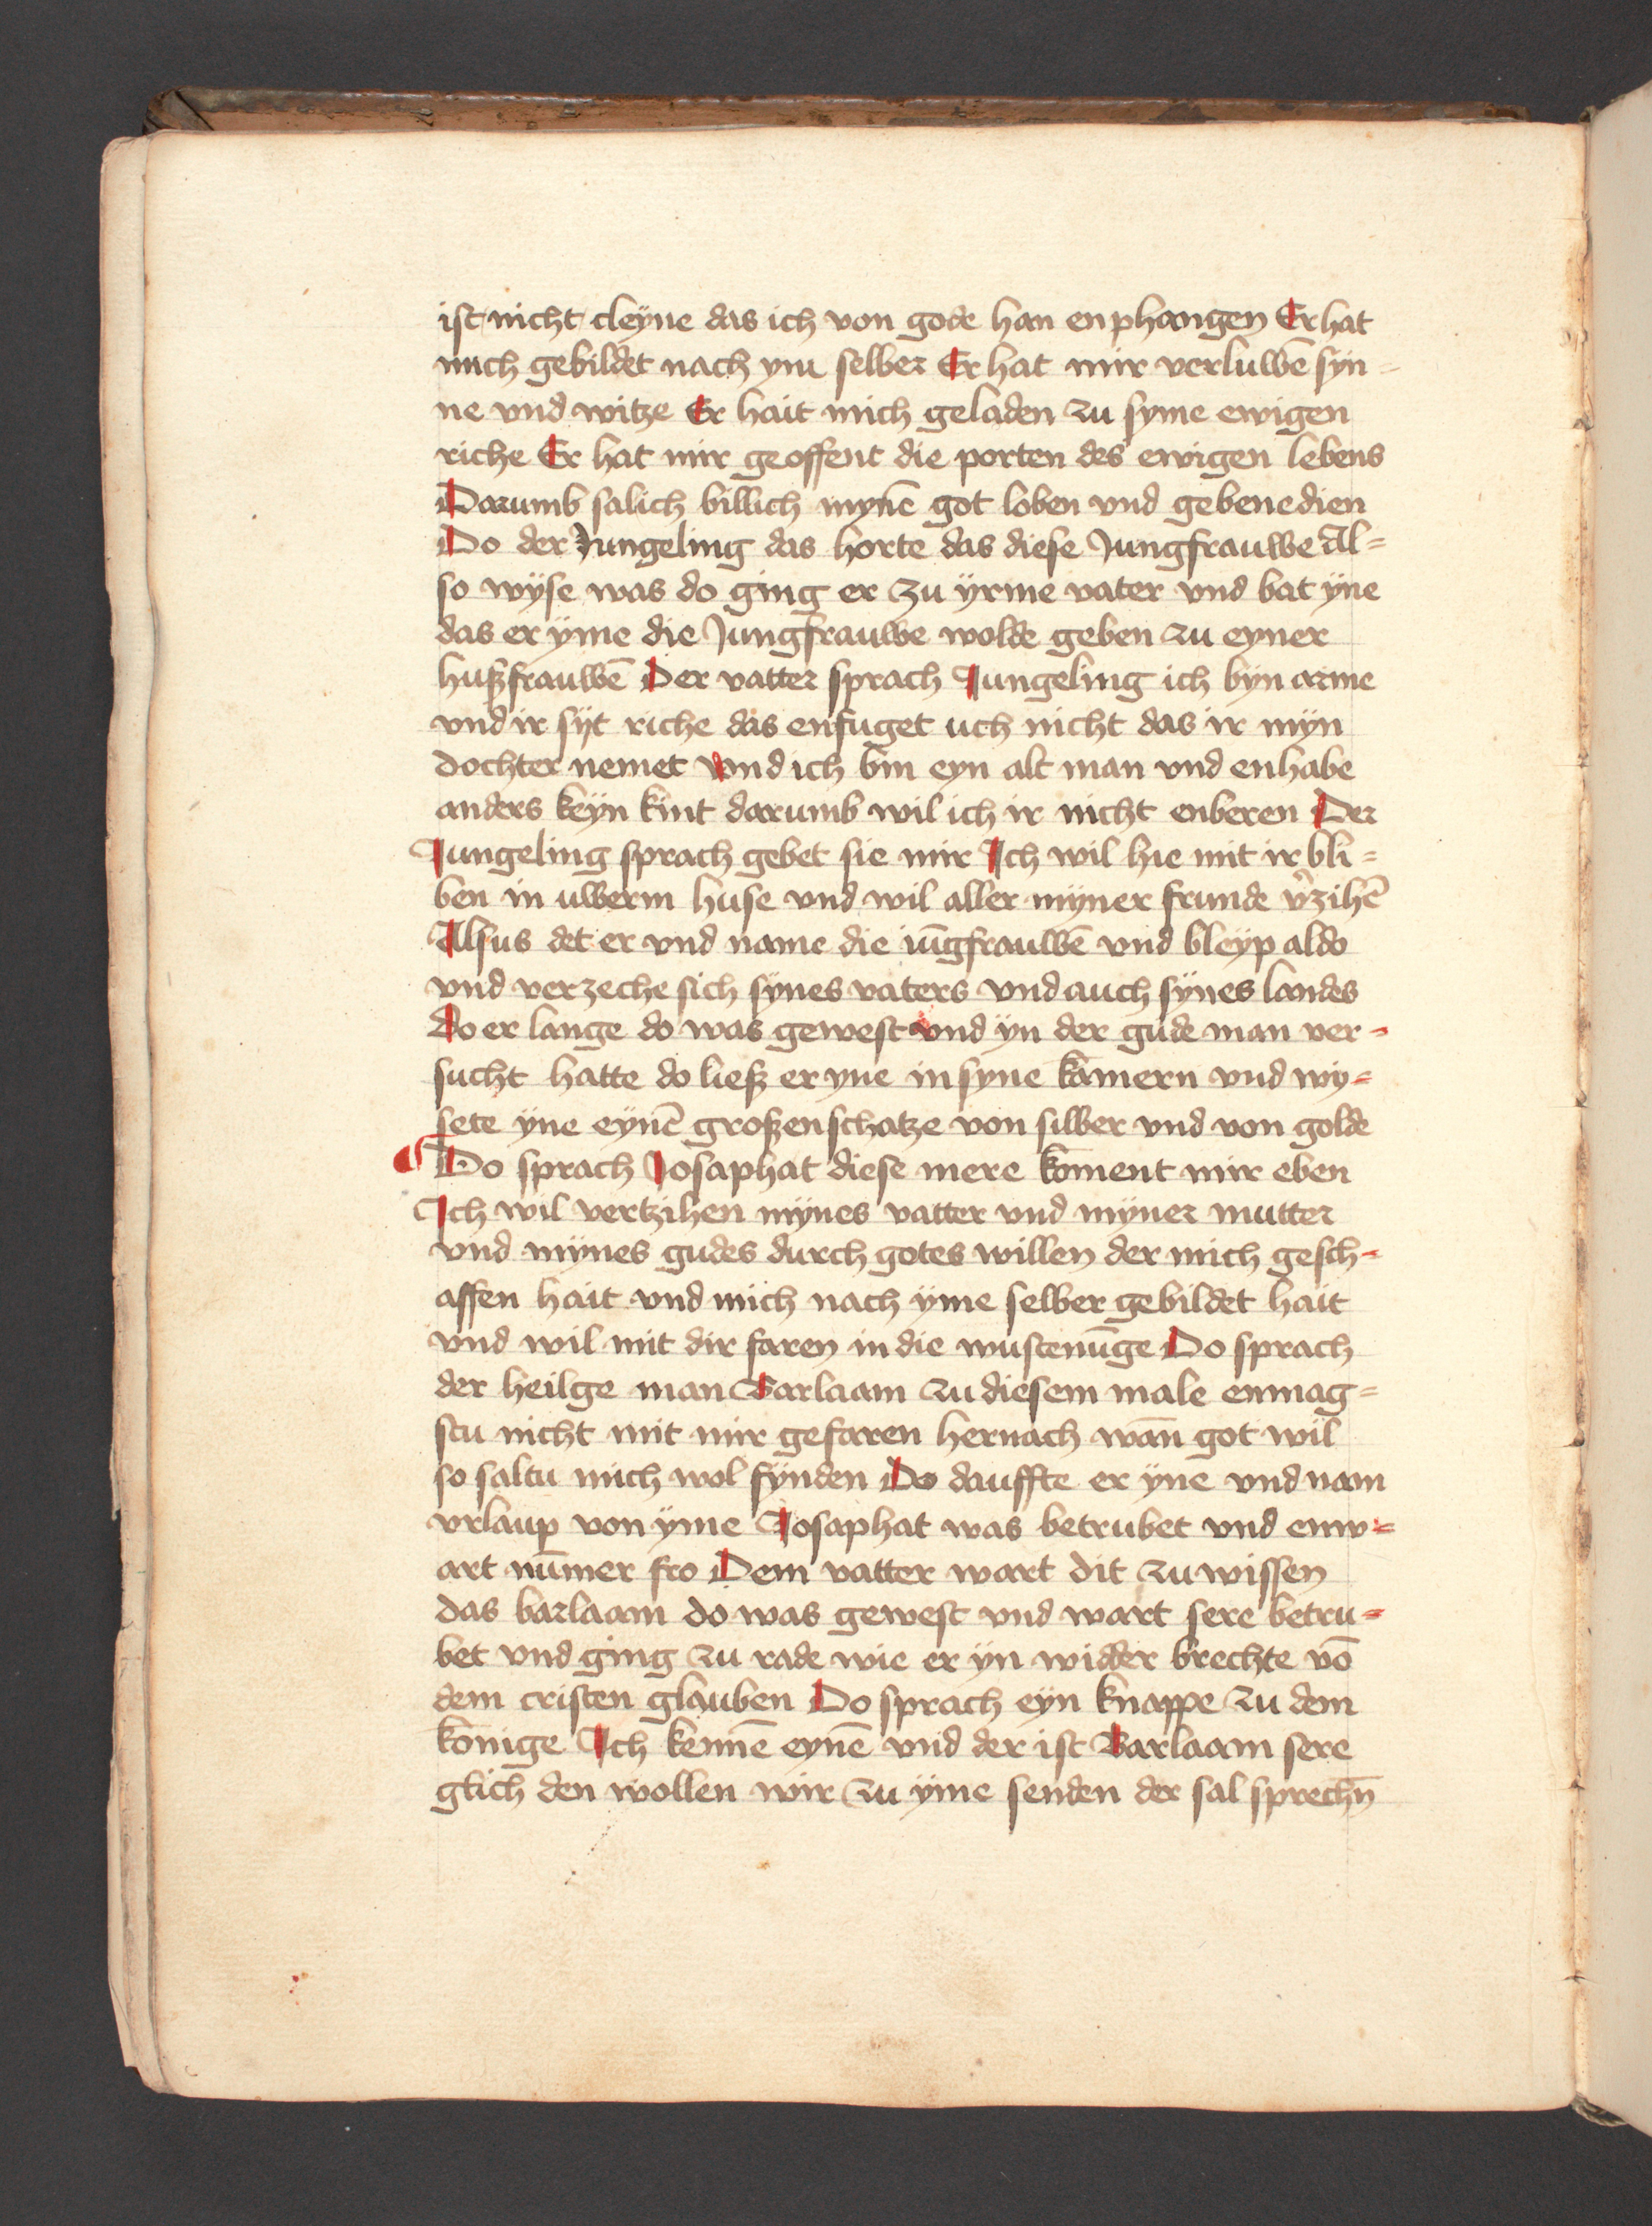 ist nicht cleyne das ich von gode han enphangen Er hat
mich gebildet nach ym selber Er hat mir verluwē syn-
ne vnd witze Er hait mich geladen zu syme ewigen
riche Er hat mir geoffent die porten des ewigen lebens
Darumb salich billich mynē got loben vnd gebenedien
Do der Jungeling das horte das diese Jungfrauwe Al=
so wÿse was do ging er zu ÿrme vater vnd bat ÿne
das er ÿme die Jungfrauwe wolde geben zu eyner
hußfrauwē Der vatter sprach Jungeling ich bÿn arme
vnd ir sÿt riche das enfuget uch nicht das ir mÿn
dochter nemet Vnd ich bin eyn alt man vnd enhabe
anders keÿn kint darumb wil ich ir nicht enberen Der
Jungeling sprach gebet sie mir Ich wil hie mit ir bli=
ben in uwerm huse vnd wil aller mÿner frunde v̉zihē
Alsus det er vnd name die iūgfrauwē vnd bleÿp aldo
vnd verzeche sich sÿnes vaters vnd auch sÿnes landes
do er lange do was gewest vnd ÿn der gude man ver=
sucht hatte do ließ er yne in syne kamern vnd wy=
sete ÿne eynē großen schatze von silber vnd von golde
Do sprach Josaphat diese mere koment mir eben
Ich wil vertzihen mÿnes vatter vnd mÿner mutter
vnd mÿnes gudes durch gotes willen der mich gesch=
affen hait vnd mich nach ÿme selber gebildet hait
vnd wil mit dir faren in die wustenūge Do sprach
der heilge man Barlaam zu diesem male enmag=
stu nicht mit mir gefaren hernach wan̄ got wil
so saltu mich wol fÿnden Do dauffte er ÿne vnd nam
vrlaup von ÿme Josaphat was betrubet vnd enw=
art nūmer fro Dem vatter wart dit zu wissen
das barlaam do was gewest vnd wart sere betru=
bet vnd ging zu rade wie er ÿn widder brechte vō
dem cristen glauben Do sprach eÿn knappe zu dem
konige Ich kennē eynē vnd der ist Barlaam sere
glich den wollen wir zu ÿme senden der sal sprechn̄